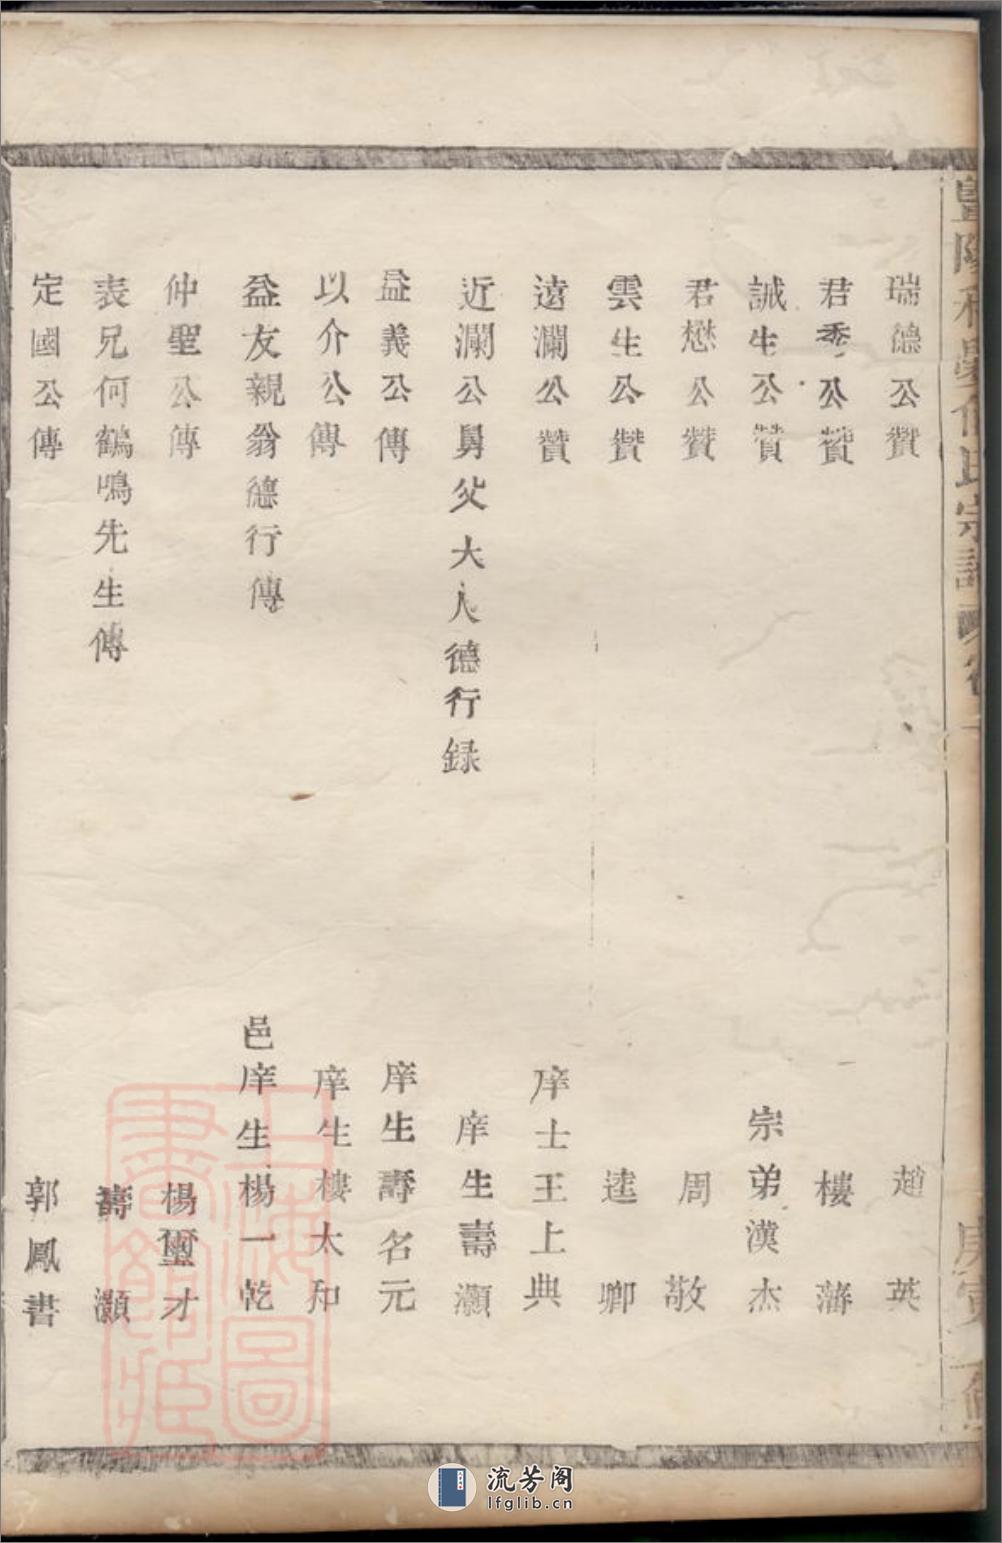 瑞德公贊 趙英
君秀公贊 樓藩
誠生公贊 宗弟漢杰
君懋公贊 周敬
雲生公贊 逵卿
遠瀾公贊 庠士王上典
近瀾公舅父大人德行録 庠生壽灝
益義公傳 庠生壽名元
以介公傳 庠生樓太和
益友親翁德行傳 邑庠生楊一乾
仲聖公傳 楊璽才
表兄何鶴鳴先生傳 壽灝
定國公傳 郭鳳書
上海圖書館藏
流芳阁
lfglib.cn